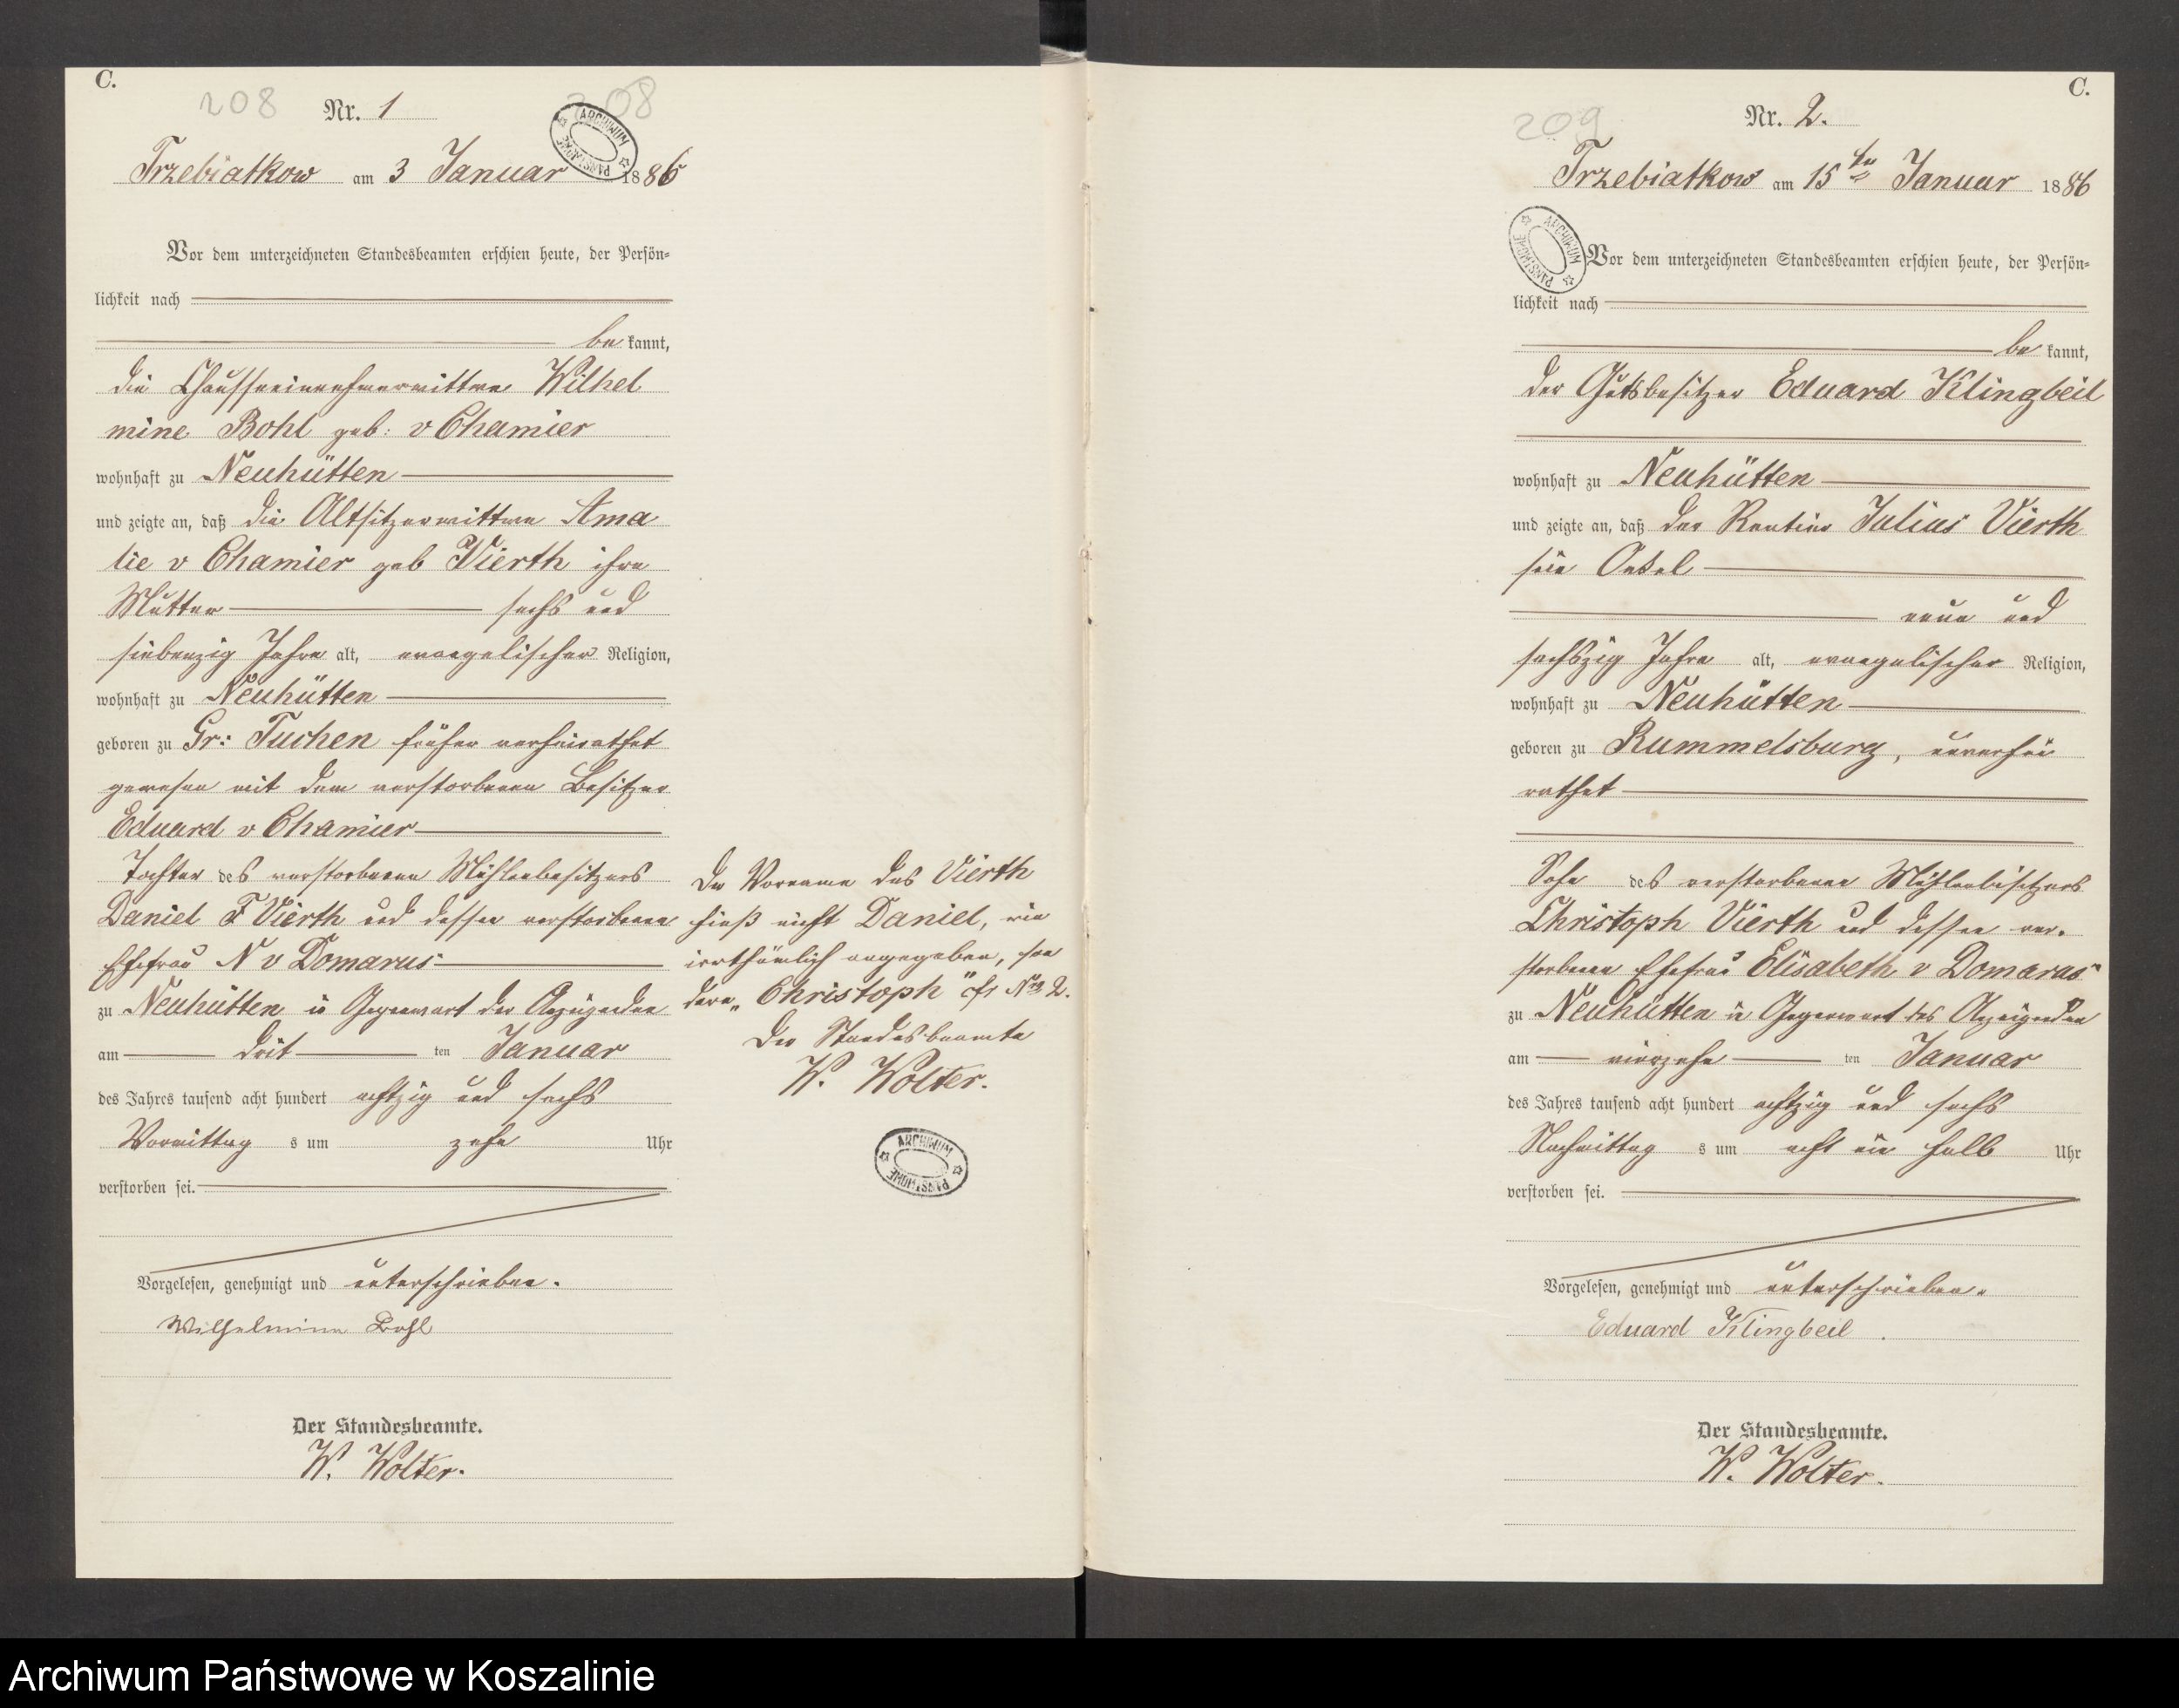 C.
208
Nr. 1
208
ARCHIWUM PAŃSTWOWE
Trzebiatkow am 3 Januar 1886
Vor dem unterzeichneten Standesbeamten erschien heute, der Persön-
lichkeit nach
be kannt,
die Chausseeinnehmerwittwe Wilhel
mine Bohl geb: v Chamier
wohnhaft zu Neuhütten
und zeigte an, daß die Altsitzerwittwe Ama
lie v Chamier geb Vierth ihre
Mutter sechs und
siebenzig Jahre alt, evangelischer Religion,
wohnhaft zu Neuhütten
geboren zu Gr: Tuchen früher verheirathet
gewesen mit dem verstorbenen Besitzer
Eduard v Chamier
Tochter des verstorbenen Mühlenbesitzers
Daniel F Vierth und dessen verstorbenen
Ehefrau N v Domarus
zu Neuhütten in Gegenwart der Anzeigenden
am drit ten Januar
des Jahres tausend acht hundert achtzig und sechs
Vormittag s um zehn Uhr
verstorben sei.
Vorgelesen, genehmigt und unterschrieben.
Wilhelmine Bohl
Der Standesbeamte.
W. Wolter.
Der Vorname des Vierth
hieß nicht Daniel, wie
irrthümlich angegeben, son
dern „Christoph" cfr No 2.
Der Standesbeamte
W. Wolter.
ARCHIWUM PAŃSTWOWE
C.
209
Nr. 2.
Trzebiatkow am 15ten Januar 1886
ARCHIWUM PAŃSTWOWE
Vor dem unterzeichneten Standesbeamten erschien heute, der Persön-
lichkeit nach
be kannt,
der Gutsbesitzer Eduard Klingbeil
wohnhaft zu Neuhütten
und zeigte an, daß der Rentier Julius Vierth
sein Onkel
neun und
sechszig Jahre alt, evangelischer Religion,
wohnhaft zu Neuhütten
geboren zu Rummelsburg, unverhei
rathet
Sohn des verstorbenen Mühlenbesitzers
Christoph Vierth und dessen ver-
storbenen Ehefrau Elisabeth v Domarus
zu Neuhütten in Gegenwart des Anzeigenden
am vierzehn ten Januar
des Jahres tausend acht hundert achtzig und sechs
Nachmittag s um acht ein halb Uhr
verstorben sei.
Vorgelesen, genehmigt und unterschrieben.
Eduard Klingbeil.
Der Standesbeamte.
W. Wolter.
Archiwum Państwowe w Koszalinie